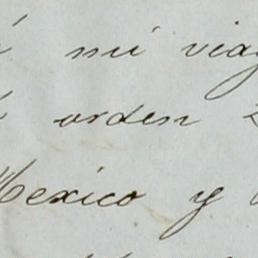 á mi viaj
orden
Mexico y